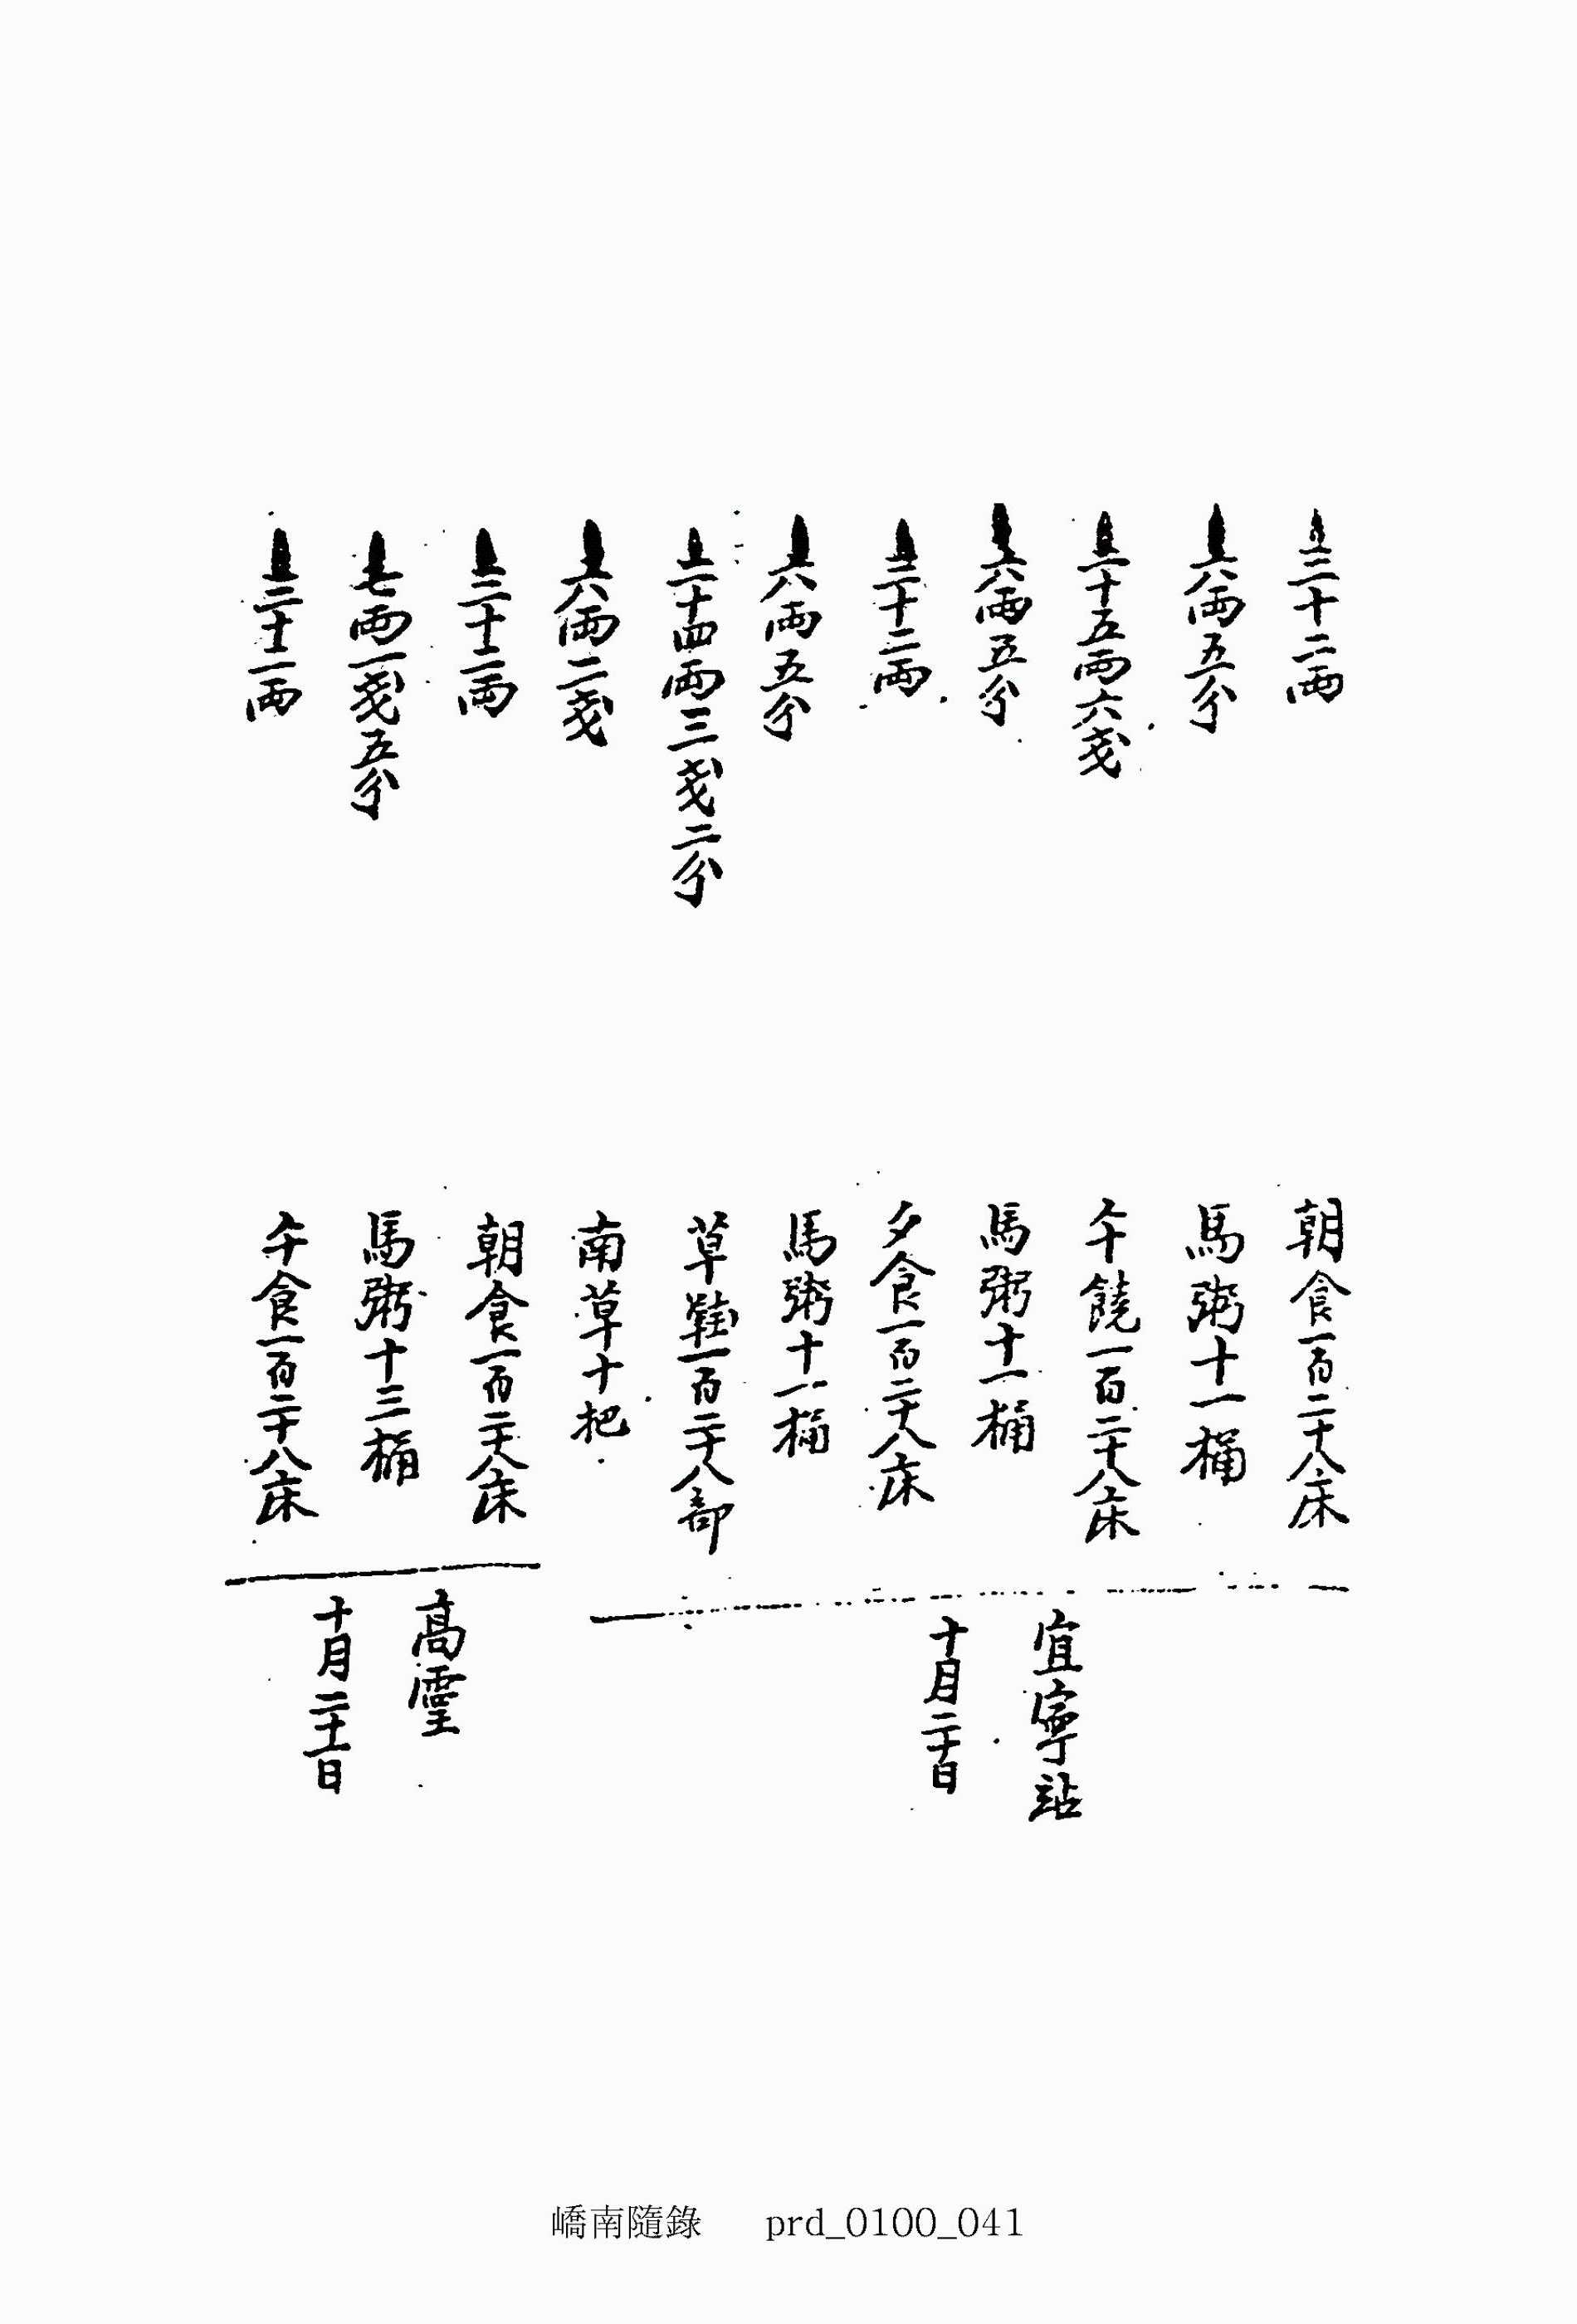 三十二兩
六兩五分
二十五兩六戔
六兩五分
三十二兩
六兩五分
二十四兩三戔二分
六兩二戔
三十二兩
七兩一戔五分
三十二兩
朝食一百二十八床
馬粥十一桶
午饒一百二十八床
馬粥十一桶
夕食一百二十八床
馬粥十一桶
草鞋一百二十八部
南草十把
朝食一百二十八床
馬粥十三桶
午食一百二十八床
宜寧站
十月二十日
高靈
十月二十一日
嶠南隨錄 prd_0100_041